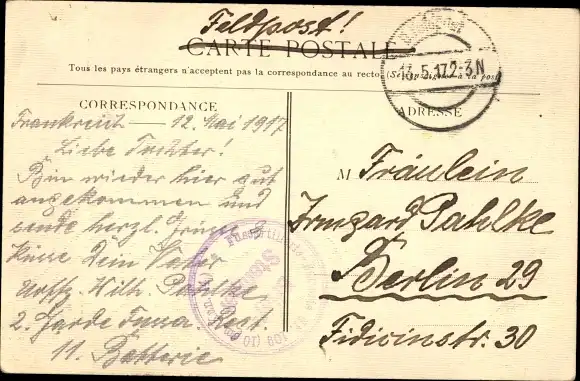 Feldpost!
CARTE POSTALE
Tous les pays étrangers n'acceptent pas la correspondance au recto
13.5.17 2-3N
CORRESPONDANCE
Frankreich — 12. Mai 1917
Liebe Tochter!
Bin wieder hier gut
angekommen und
sende herzl. Grüsse &
Küsse Dein Vater
Uoffz. Wilh. Pahlke
2. Garde Fussa. Regt.
11. Batterie
ADRESSE
M Fräulein
Irmgard Pahlke
Berlin 29
Fidicinstr. 30